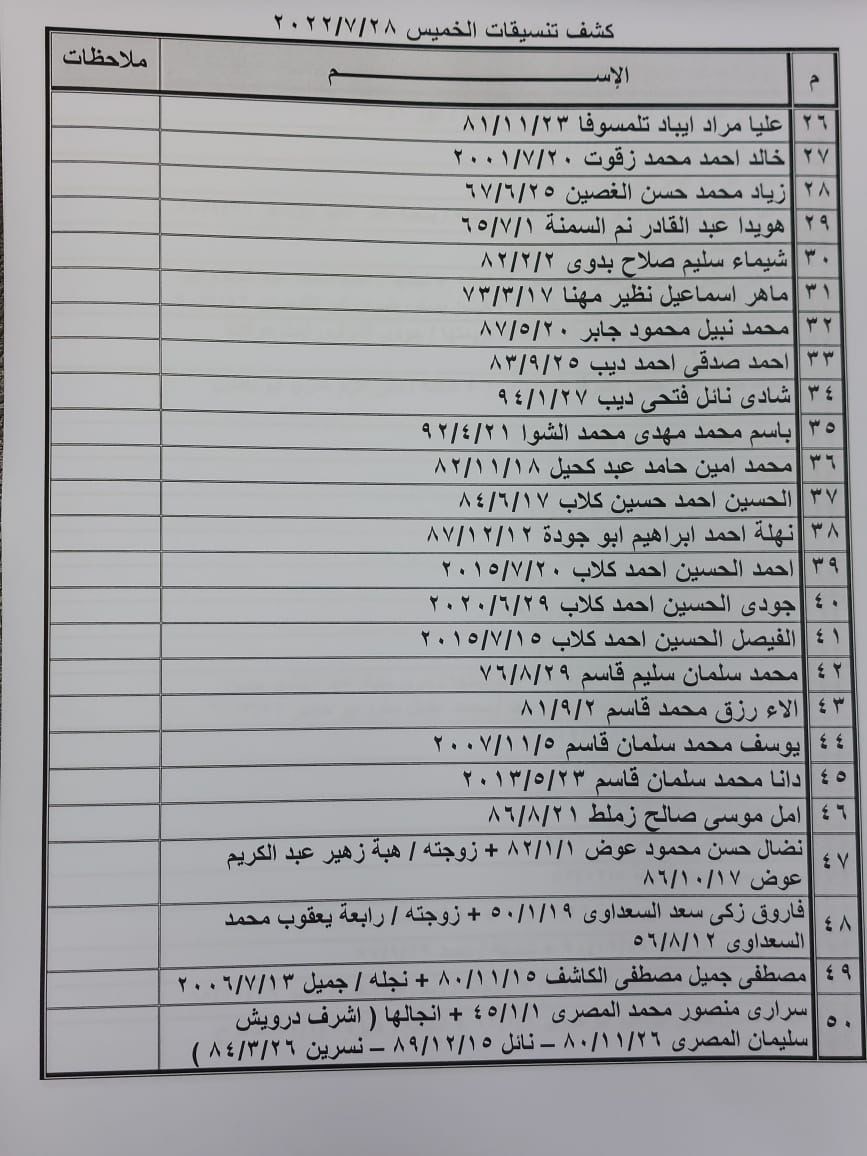 كشف تنسيقات الخميس ٢٠٢٢/٧/٢٨
م الإســـــــــــم ملاحظات
٢٦ عليا مراد ايباد تلمسوفا ٨١/١١/٢٣
٢٧ خالد احمد محمد زقوت ٢٠٠١/٧/٢٠
٢٨ زياد محمد حسن الغصين ٦٧/٦/٢٥
٢٩ هويدا عبد القادر نم السمنة ٦٥/٧/١
٣٠ شيماء سليم صلاح بدوى ٨٢/٢/٢
٣١ ماهر اسماعيل نظير مهنا ٧٣/٣/١٧
٣٢ محمد نبيل محمود جابر ٨٧/٥/٢٠
٣٣ احمد صدقى احمد ديب ٨٣/٩/٢٥
٣٤ شادى نائل فتحى ديب ٩٤/١/٢٧
٣٥ باسم محمد مهدى محمد الشوا ٩٢/٤/٢١
٣٦ محمد امين حامد عبد كحيل ٨٢/١١/١٨
٣٧ الحسين احمد حسين كلاب ٨٤/٦/١٧
٣٨ نهلة احمد ابراهيم ابو جودة ٨٧/١٢/١٢
٣٩ احمد الحسين احمد كلاب ٢٠١٥/٧/٢٠
٤٠ جودى الحسين احمد كلاب ٢٠٢٠/٦/٢٩
٤١ الفيصل الحسين احمد كلاب ٢٠١٥/٧/١٥
٤٢ محمد سلمان سليم قاسم ٧٦/٨/٢٩
٤٣ الاء رزق محمد قاسم ٨١/٩/٢
٤٤ يوسف محمد سلمان قاسم ٢٠٠٧/١١/٥
٤٥ دانا محمد سلمان قاسم ٢٠١٣/٥/٢٣
٤٦ امل موسى صالح زملط ٨٦/٨/٢١
٤٧ نضال حسن محمود عوض ٨٢/١/١ + زوجته / هبة زهير عبد الكريم
عوض ٨٦/١٠/١٧
٤٨ فاروق زكى سعد السعداوى ٥٠/١/١٩ + زوجته / رابعة يعقوب محمد
السعداوى ٥٦/٨/١٢
٤٩ مصطفى جميل مصطفى الكاشف ٨٠/١١/١٥ + نجله / جميل ٢٠٠٦/٧/١٣
٥٠ سرارى منصور محمد المصرى ٤٥/١/١ + انجالها ( اشرف درويش
سليمان المصرى ٨٠/١١/٢٦ – نائل ٨٩/١٢/١٥ – نسرين ٨٤/٣/٢٦ )